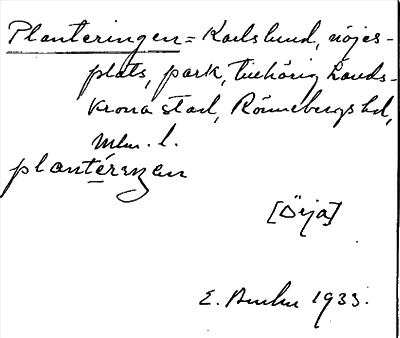 Planteringen = Karlslund, nöjes-
plats, park, tillhörig Lands-
krona stad, Rönnebergs hd,
Mlm. l.
plantérɩŋen
[Örja]
E. 1933.